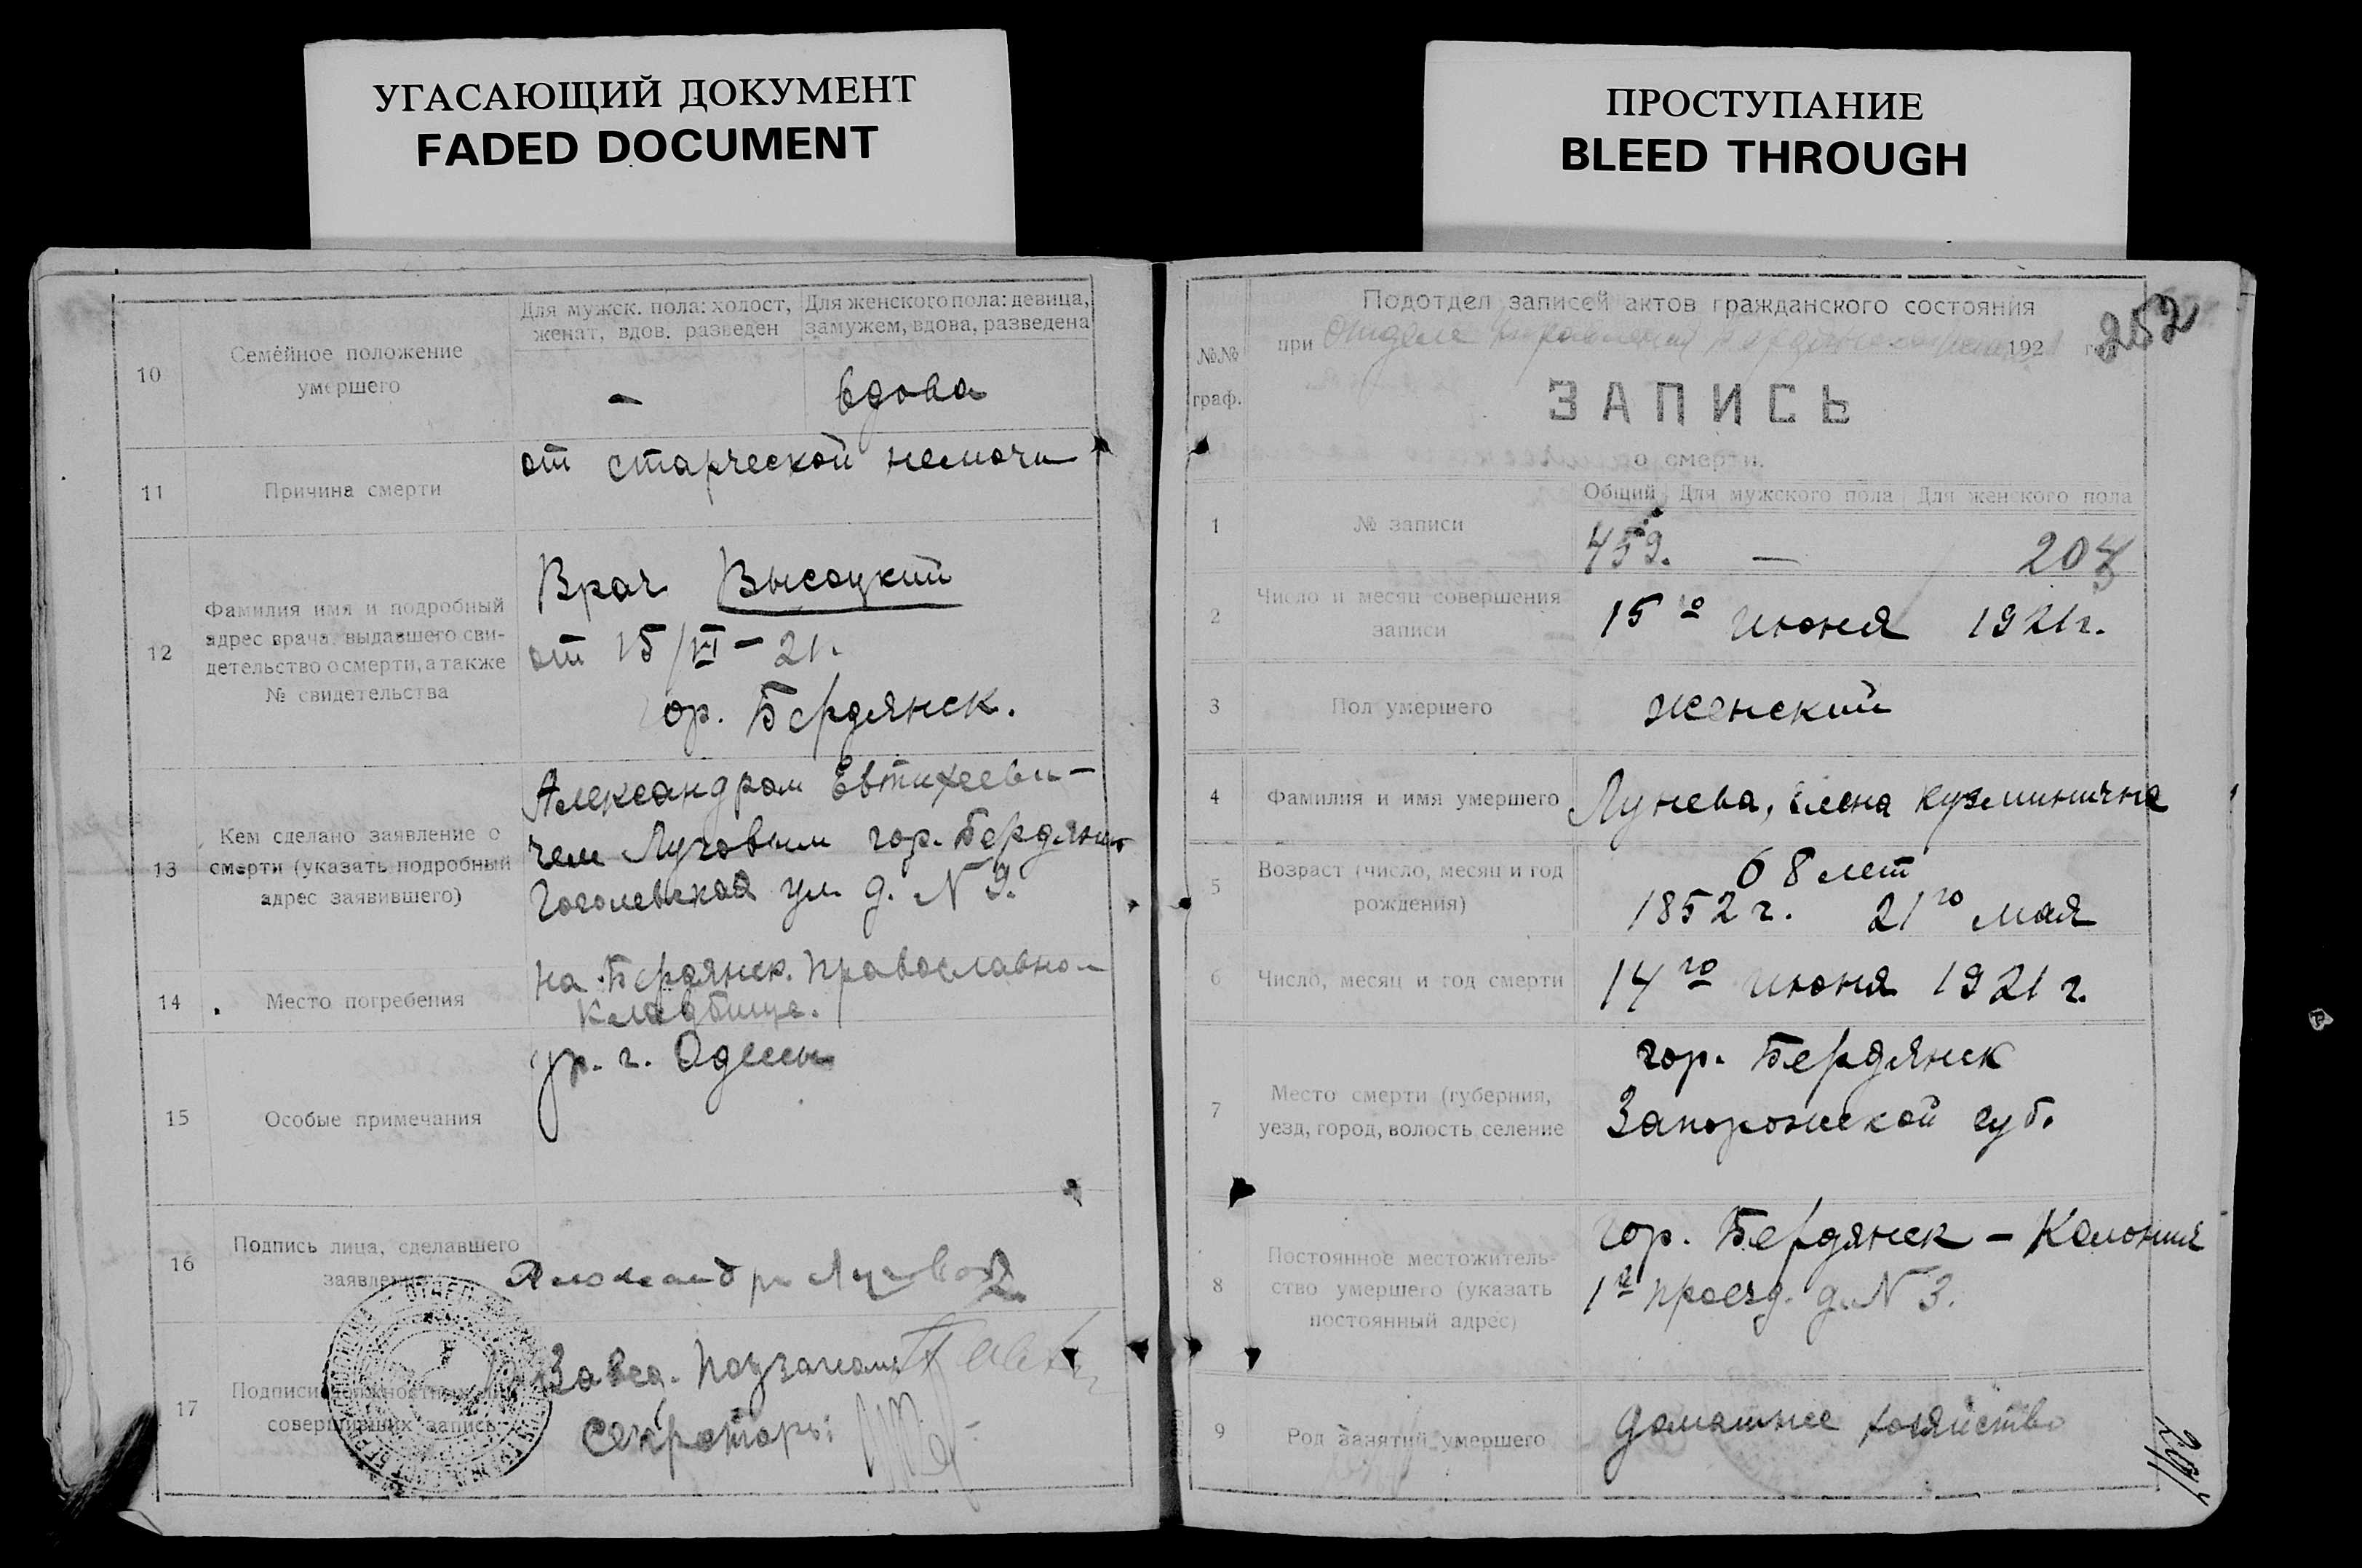 УГАСАЮЩИЙ ДОКУМЕНТ
FADED DOCUMENT
ПРОСТУПАНИЕ
BLEED THROUGH
10
Семейное положение
умершего
Для мужск. пола: холост,
женат, вдов. разведен
Для женского пола: девица,
замужем, вдова, разведена
—
вдова
11
Причина смерти
от старческой немочи
12
Фамилия имя и подробный
адрес врача, выдавшего сви-
детельство о смерти, а также
№ свидетельства
Врач Высоцкий
от 15/VI – 21.
гор. Бердянск.
13
Кем сделано заявление о
смерти (указать подробный
адрес заявившего)
Александром Евтихееви-
чем Луговым гор. Бердянск
Гоголевская ул. д. N 9.
14
Место погребения
на Бердянск. православном
кладбище.
15
Особые примечания
ур. г. Одессы
16
Подпись лица, сделавшего
заявление
Александр Луговой
17
Подписи должностных лиц
совершивших запись
Завед. Подзагсом
Секретарь:
Подотдел записей актов гражданского состояния
при Отделе Управления 192 г.
252
№№
граф.
ЗАПИСЬ
о смерти.
1
№ записи
Общий
Для мужского пола
Для женского пола
459.
—
2
Число и месяц совершения
записи
15го июня 1921 г.
3
Пол умершего
женский
4
Фамилия и имя умершего
Лунева, Елена Кузминична
5
Возраст (число, месяц и год
рождения)
68 лет
1852 г. 21го мая
6
Число, месяц и год смерти
14го июня 1921 г.
7
Место смерти (губерния,
уезд, город, волость, селение
гор. Бердянск
Запорожской губ.
8
Постоянное местожитель-
ство умершего (указать
постоянный адрес)
гор. Бердянск – Колония
1й проезд. д. N 3.
9
Род занятий умершего
домашнее хозяйство